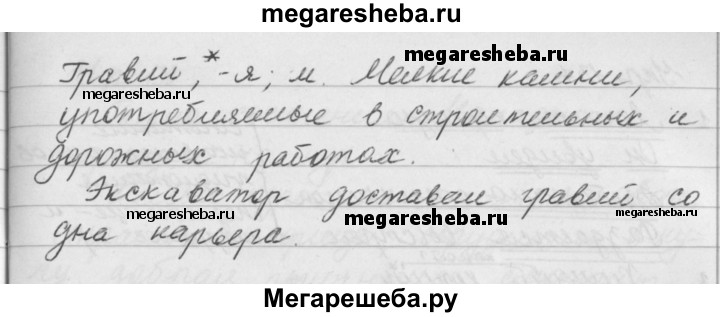 megaresheba.ru
Гравий,* -я; м. Мелкие камни,
megaresheba.ru
megaresheba.ru
употребляемые в строительных и
megaresheba.ru
дорожных работах.
Экскаватор доставал гравий со
megaresheba.ru
megaresheba.ru
megaresheba.ru
дна карьера.
Мегарешеба.ру